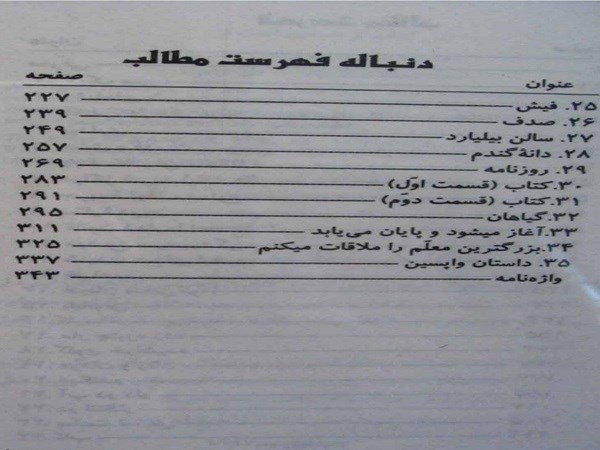 دنباله فهرست مطالب
عنوان صفحه
۲۵. فیش ۲۲۷
۲۶. صدف ۲۳۹
۲۷. سالن بیلیارد ۲۴۹
۲۸. دانهٔ گندم ۲۵۷
۲۹. روزنامه ۲۶۹
۳۰.کتاب (قسمت اوّل) ۲۸۳
۳۱.کتاب (قسمت دوّم) ۲۹۱
۳۲.گیاهان ۲۹۵
۳۳.آغاز میشود و پایان می‌یابد ۳۱۱
۳۴.بزرگترین معلّم را ملاقات میکنم ۳۲۵
۳۵. داستان واپسین ۳۳۷
واژه‌نامه ۳۴۳